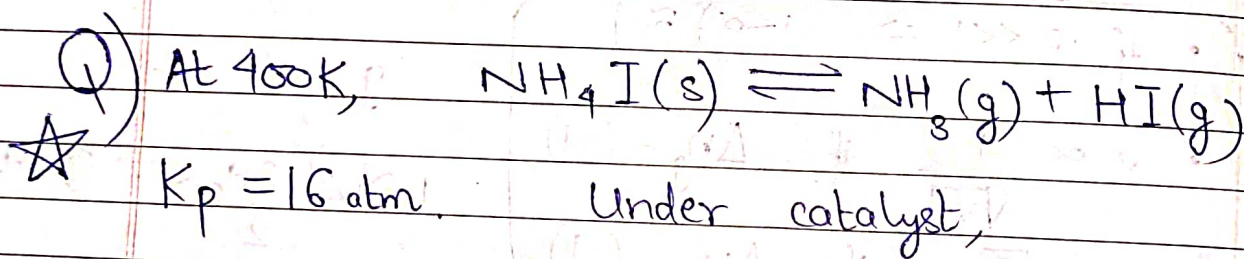 Q) At 400K, NH₄I(s) ⇌ NH₃(g) + HI(g)
Kp = 16 atm. Under catalyst,